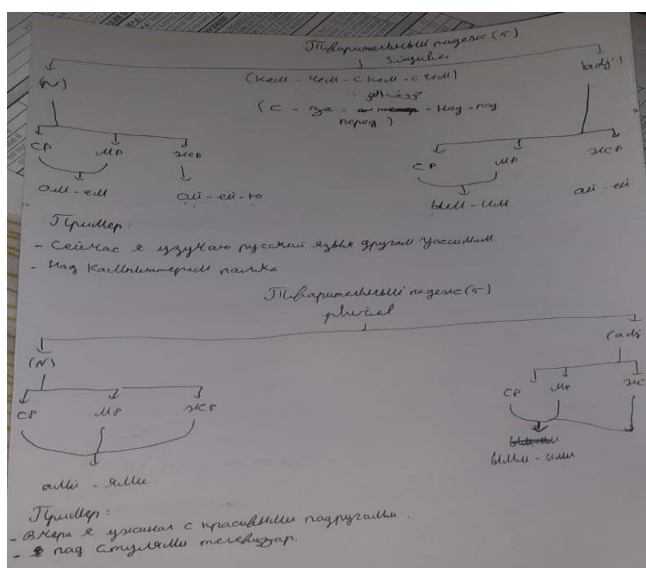 Тварительный падеж (5)
singular
(N) (кем - чем - с кем - с чем) (adj)
(с - за - - над - под
перед)
СР МР ЖСР СР МР ЖСР
ом - ем ой - ей - ю ым - им ой - ей
Пример:
- Сейчас я узучаю русский язык другам Уассимам
- Над Кампиютерам палка
Тварительный падеж (5)
plurial
(N) (adj
СР МР ЖСР СР МР ЖС
ами - ями ыми - ими
Пример:
- Вчера я ужинал с красивыми падругами.
- под стулями телевизар.